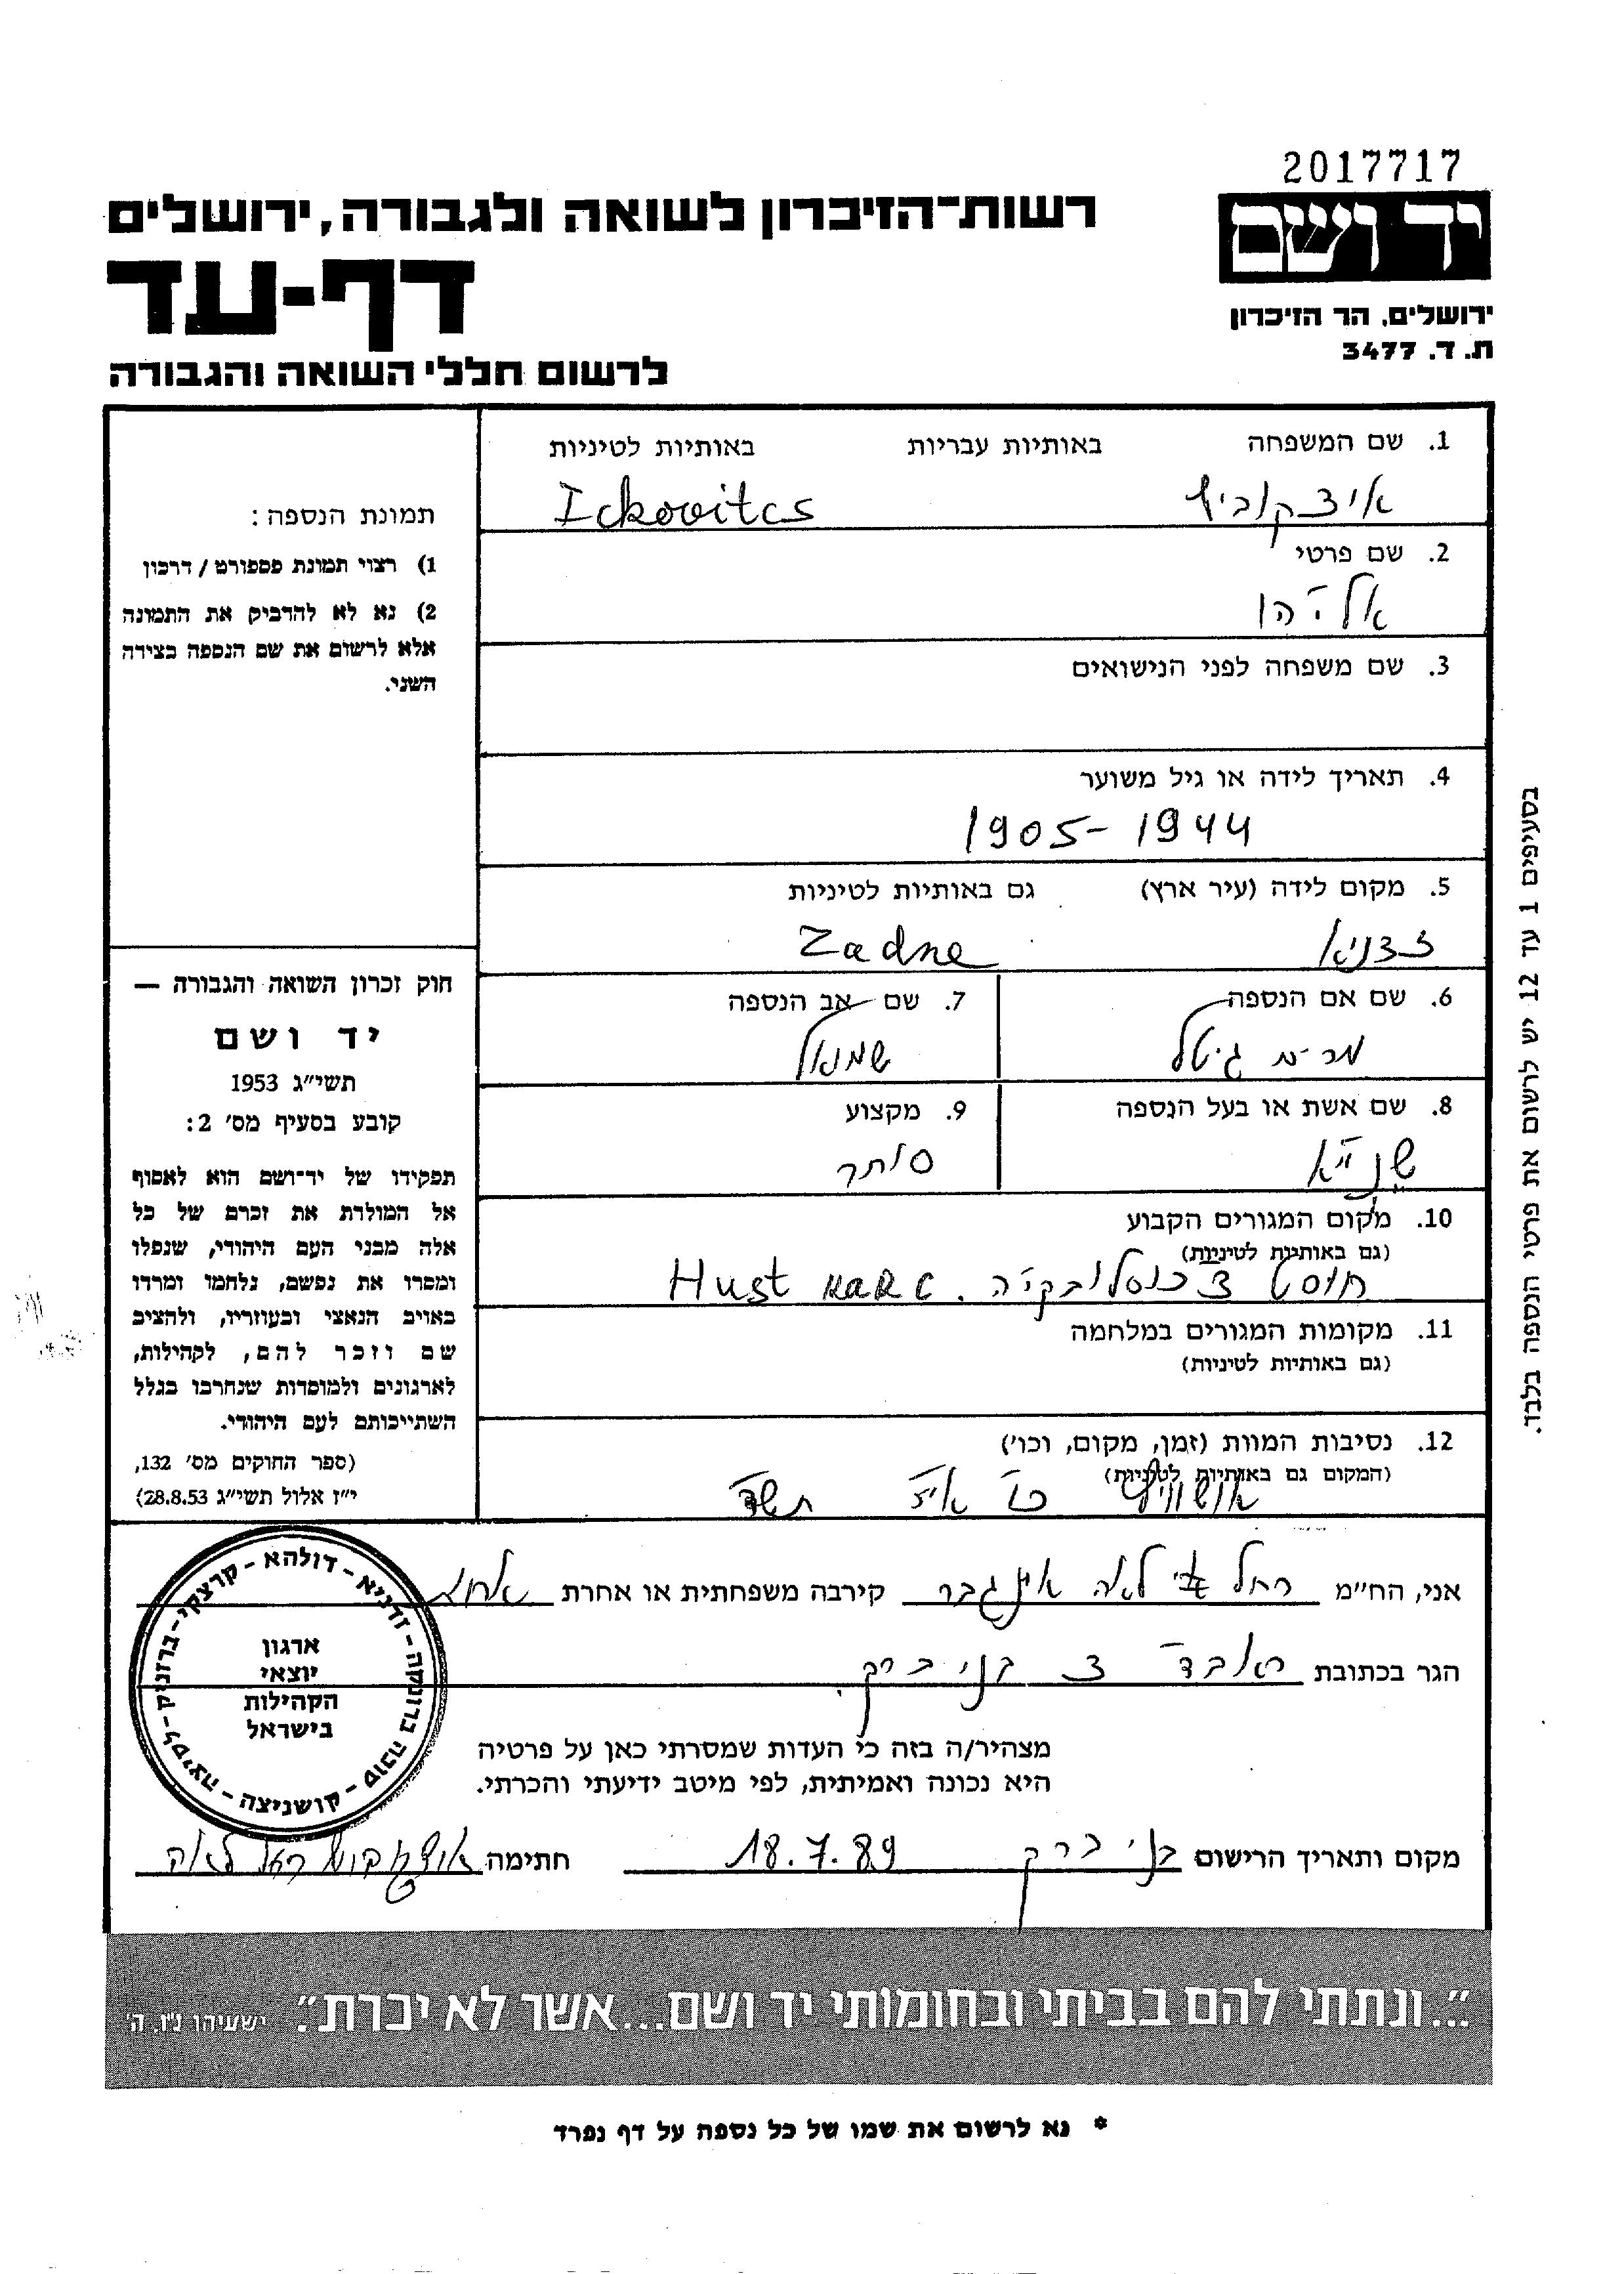 2017717
יד ושם
ירושלים, הר הזיכרון
ת. ד. 3477
רשות־הזיכרון לשואה ולגבורה, ירושלים
דף-עד
לרשום חללי השואה והגבורה
1. שם המשפחה באותיות עבריות באותיות לטיניות
איצקוביץ Ickovitcs
2. שם פרטי
אליהו
3. שם משפחה לפני הנישואים
4. תאריך לידה או גיל משוער
1905-1944
5. מקום לידה (עיר ארץ) גם באותיות לטיניות
Zadne
6. שם אם הנספה 7. שם אב הנספה
מרים גיטל שמואל
8. שם אשת או בעל הנספה 9. מקצוע
סוחר
10. מקום המגורים הקבוע
(גם באותיות לטיניות)
חוסט צ'כוסלובקיה. Hust KaRC
11. מקומות המגורים במלחמה
(גם באותיות לטיניות)
12. נסיבות המוות (זמן, מקום, וכו')
(המקום גם באותיות לטיניות)
אושוויץ תש"ד
תמונת הנספה:
1) רצוי תמונת פספורט / דרכון
2) נא לא להדביק את התמונה
אלא לרשום את שם הנספה בצידה
השני.
חוק זכרון השואה והגבורה —
יד ושם
תשי"ג 1953
קובע בסעיף מס' 2:
תפקידו של יד־ושם הוא לאסוף
אל המולדת את זכרם של כל
אלה מבני העם היהודי, שנפלו
ומסרו את נפשם, נלחמו ומרדו
באויב הנאצי ובעוזריו, ולהציב
שם וזכר להם, לקהילות,
לארגונים ולמוסדות שנחרבו בגלל
השתייכותם לעם היהודי.
(ספר החוקים מס' 132,
י"ז אלול תשי"ג 28.8.53)
בסעיפים 1 עד 12 יש לרשום את פרטי הנספה בלבד.
אני, הח"מ רחל לאה קירבה משפחתית או אחרת
הגר בכתובת בני ברק.
מצהיר/ה בזה כי העדות שמסרתי כאן על פרטיה
היא נכונה ואמיתית, לפי מיטב ידיעתי והכרתי.
מקום ותאריך הרישום בני ברק 18.7.89 חתימה רחל לאה
דולהא - קרצקי - ברזניק - לסיצה - קושניצה - סובה ברונקה - זדניא
ארגון
יוצאי
הקהילות
בישראל
"...ונתתי להם בביתי ובחומותי יד ושם...אשר לא יכרת". ישעיהו נ"ו, ה'
* נא לרשום את שמו של כל נספה על דף נפרד